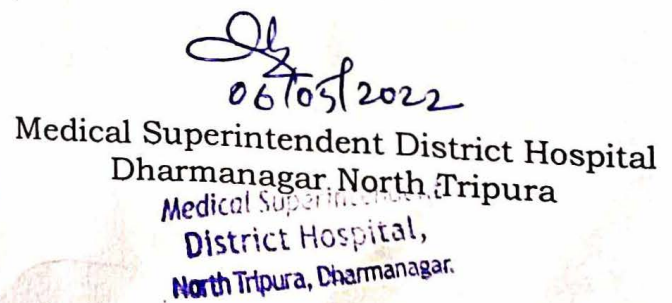 06/05/2022
Medical Superintendent District Hospital
Dharmanagar North Tripura
Medical
District Hospital,
North Tripura, Dharmanagar.